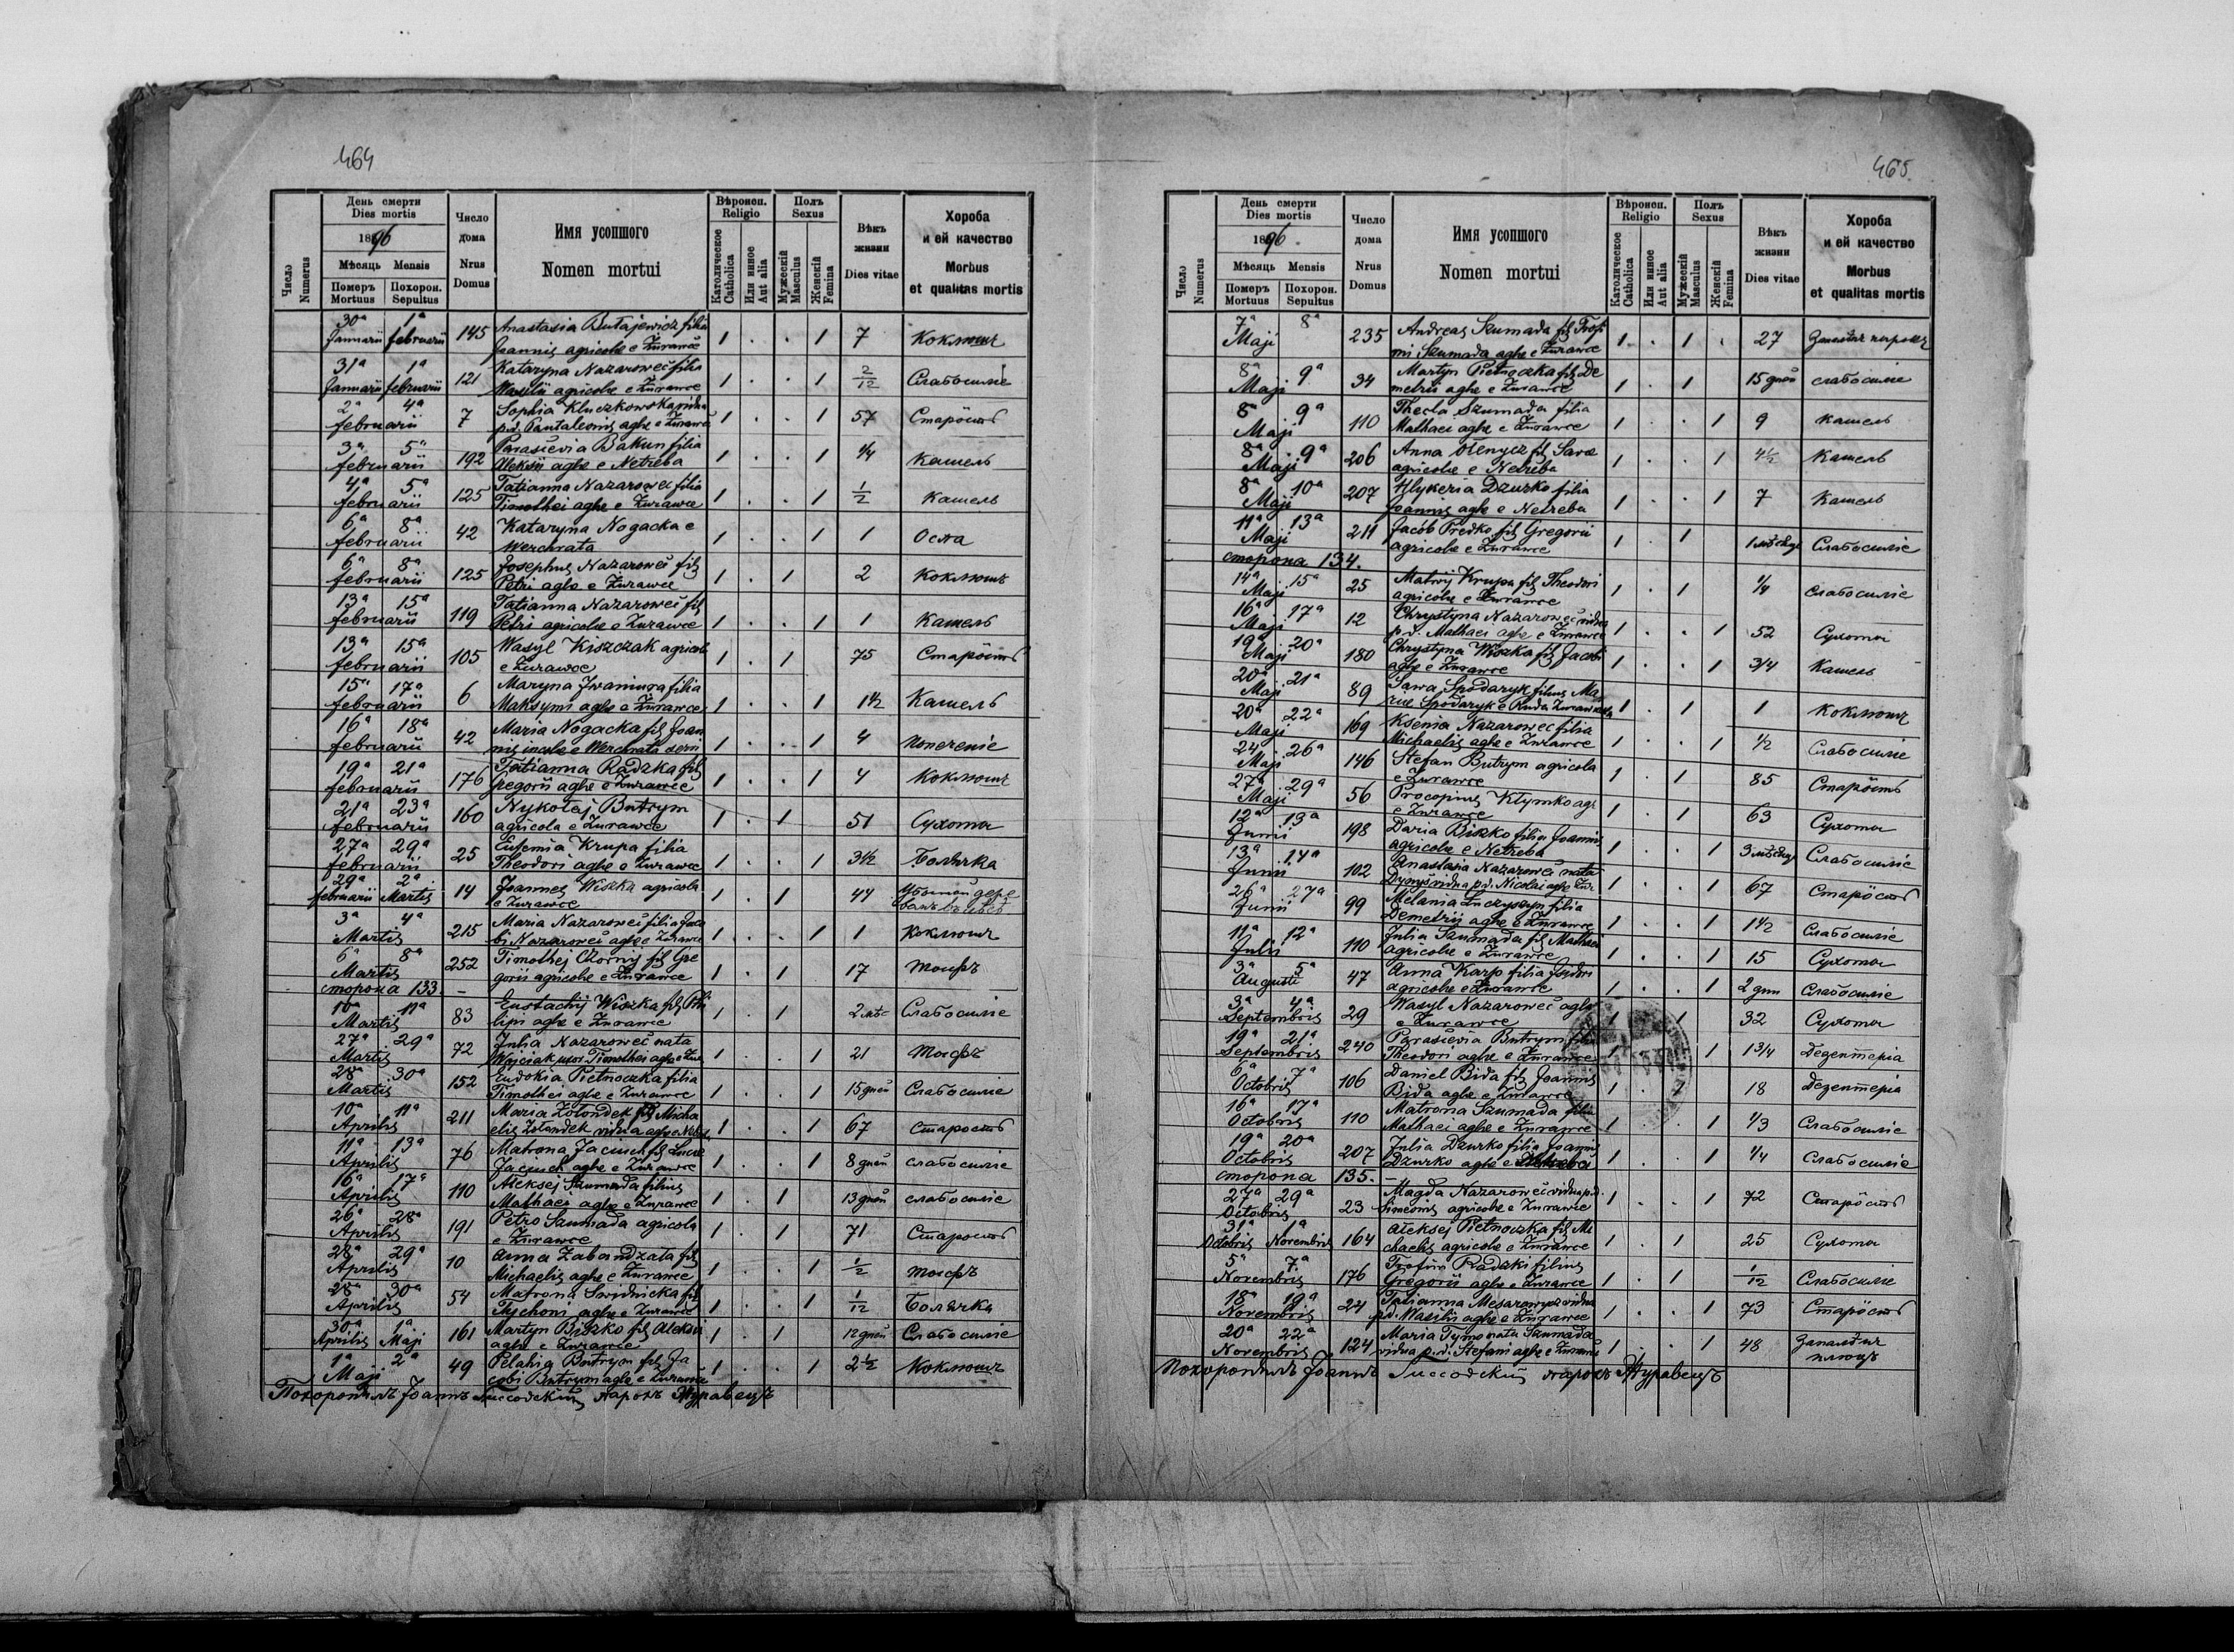 464
День смерти
Dies mortis
1896
Мѣсяць Mensis
Померъ Похорон.
Mortuus Sepultus
Число
Numerus
Число
дома
Nrus
Domus
Имя усопшого
Nomen mortui
Вѣроисп.
Religio
Католическое
Catholica
Или инное
Aut alia
Полъ
Sexus
Мужескій
Masculus
Женскій
Femina
Вѣкъ
жизни
Dies vitae
Хороба
и ей качество
Morbus
et qualitas mortis
30ª 1ª
Januarii februarii 145 Anastasia Butajewicz filia 1 . . 1 7 Коклюшъ
Joannis agricolae e Żurawce
31ª 1ª
Januarii februarii 121 Kataryna Nazaroweć filia 1 . . 1 2/12 Слабосиліе
Wasilii agricolae e Żurawce
2ª 4ª
februarii 7 Sophia Kluczkowska vidua 1 . . 1 57 Старôсть
p.d. Pantaleonis aglae e Żurawce
3ª 5ª
februarii 192 Parasievia Bakun filia 1 . . 1 1/4 Кашель
Aleksii aglae e Netreba
4ª 5ª
februarii 125 Tatianna Nazaroweć filia 1 . . 1 1/2 Кашель
Timothei aglae e Żurawce
6ª 8ª
februarii 42 Kataryna Nogacka e 1 . . 1 1 Оспа
Werchrata
6ª 8ª
februarii 125 Josephus Nazaroweć fil 1 . 1 2 Коклюшъ
Petri aglae e Żurawce
13ª 15ª
februarii 119 Tatianna Nazaroweć fil 1 . . 1 1 Кашель
Petri agricolae e Żurawce
13ª 15ª
februarii 105 Wasyl Kiszczak agricola 1 . 1 75 Старôсть
e Żurawce
15ª 17ª
februarii 6 Maryna Iwaniura filia 1 . . 1 1½ Кашель
Maksymi aglae e Żurawce
16ª 18ª
februarii 42 Maria Nogacka fil Joan 1 . . 1 4 Попеченіе
nis incolae e Werchrata
19ª 21ª
februarii 176 Tatianna Radzka fil 1 . . 1 4 Коклюшъ
Gregorii aglae e Żurawce
21ª 23ª
februarii 160 Nykołaj Butrym 1 . 1 51 Сухоты
agricola e Żurawce
27ª 29ª
februarii 25 Eufemia Krupa filia 1 . . 1 3½ Болячка
Theodori aglae e Żurawce
29ª 2ª
februarii Martis 14 Joannes Wiszka agricola 1 . 1 44
e Żurawce
3ª 4ª
Martis 215 Maria Nazaroweć filia Jaco 1 . . 1 1 Коклюшъ
bi Nazaroweć aglae e Żurawce
6ª 8ª
Martis 252 Timothej Czornij fil Gre 1 . 1 17 Тыифъ
gorii agricolae e Żurawce
сторона 133. –
10ª 11ª
Martis 83 Eustachij Wiszka fil Phi 1 . 1 Слабосиліе
lipi aglae e Żurawce
27ª 29ª
Martis 72 Julia Nazaroweć nata 1 . . 1 21 Тыифъ
Wojciak uxor Timothei aglae e Żur.
28ª 30ª
Martis 152 Eudokia Pietnoczka filia 1 . . 1 15 дней Слабосиліе
Timothei aglae e Żurawce
10ª 11ª
Aprilis 211 Maria Żołondek fil Micha 1 . . 1 67 Старость
elis Żołondek vidua aglae e Netreba
11ª 13ª
Aprilis 76 Matrona Jaciuch fil Lucae 1 . . 1 8 дней слабосиліе
Jaciuch aglae e Żurawce
16ª 17ª
Aprilis 110 Ałeksej Szumada filius 1 . 1 13 дней слабосиліе
Mathaei aglae e Żurawce
26ª 28ª
Aprilis 191 Petro Szumada agricola 1 . 1 71 Старость
e Żurawce
28ª 29ª
Aprilis 10 Anna Zabandzała fil 1 . . 1 1/2 Тыифъ
Michaelis aglae e Żurawce
28ª 30ª
Aprilis 54 Matrona Swidnicka fil 1 . . 1 1/12 Болячка
Tychoni aglae e Żurawce
30ª 1ª
Aprilis Maji 161 Martyn Biszko fil Aleksii 1 . 1 12 дней Слабосиліе
aglae e Żurawce
1ª 2ª
Maji 49 Pelahia Butrym fil Ja 1 . . 1 2½ Коклюшъ
cobi Butrym aglae e Żurawce
Похоронилъ Іоаннъ Гиссовскій парохъ Журавецъ
465
День смерти
Dies mortis
1896.
Мѣсяць Mensis
Померъ Похорон.
Mortuus Sepultus
Число
Numerus
Число
дома
Nrus
Domus
Имя усопшого
Nomen mortui
Вѣроисп.
Religio
Католическое
Catholica
Или инное
Aut alia
Полъ
Sexus
Мужескій
Masculus
Женскій
Femina
Вѣкъ
жизни
Dies vitae
Хороба
и ей качество
Morbus
et qualitas mortis
7ª 8ª
Maji 235 Andreas Szumada fil Trofi 1 . 1 . 27
mi Szumada aglae e Żurawce
8ª 9ª
Maji 34 Martyn Pietnoczka fil De 1 . 1 15 дней слабосиліе
metrii aglae e Żurawce
8ª 9ª
Maji 110 Thecla Szumada filia 1 . . 1 9 Кашель
Mathaei aglae e Żurawce
8ª 9ª
Maji 206 Anna Ołenycz fil Savae 1 . . 1 4½ Кашель
agricolae e Netreba
8ª 10ª
Maji 207 Hlykeria Dzurko filia 1 . . 1 7 Кашель
Joannis aglae e Netreba
11ª 13ª
Maji 211 Jacób Predko fil Gregorii 1 . 1 Слабосиліе
agricolae e Żurawce
сторона 134.
14ª 15ª
Maji 25 Matwij Krupa fil Theodori 1 . 1 1/4 Слабосиліе
agricolae e Żurawce
16ª 17ª
Maji 12 Chrystyna Nazaroweć vidua 1 . . 1 52 Сухоты
p.d. Mathaei aglae e Żurawce
19ª 20ª
Maji 180 Chrystyna Wiszka fil Jacobi 1 . . 1 3/4 Кашель
aglae e Żurawce
20ª 21ª
Maji 89 Sawa Spodaryk filius Ma 1 . 1 1 Коклюшъ
riae Spodaryk e Ruda Żurawecka
20ª 22ª
Maji 169 Ksenia Nazaroweć filia 1 . . 1 1/2 Слабосиліе
Michaelis aglae e Żurawce
24ª 26ª
Maji 146 Stefan Butrym agricola 1 . 1 85 Старôсть
e Żurawce
27ª 29ª
Maji 56 Procopius Kłymko agr. 1 . 1 63 Сухоты
e Żurawce
12ª 13ª
Junii 198 Daria Biszko filia Joannis 1 . . 1 Слабосиліе
agricolae e Netreba
13ª 14ª
Junii 102 Anastasia Nazaroweć nata 1 . . 1 67 Старôсть
Dymyś vidua p.d. Nicolai aglae Żur.
26ª 27ª
Junii 99 Melania Łuczyszyn filia 1 . . 1 1½ Слабосиліе
Demetrii aglae e Żurawce
11ª 12ª
Julii 110 Julia Szumada fil Mathaei 1 . . 1 15 Сухоты
agricolae e Żurawce
3ª 5ª
Augusti 47 Anna Karp filia Isidori 1 . . 1 2 дни Слабосиліе
agricolae e Żurawce
3ª 4ª
Septembris 29 Wasyl Nazaroweć agla 1 . 1 32 Сухоты
e Żurawce
19ª 21ª
Septembris 240 Parasievia Butrym filia 1 . . 1 1 3/4 Дезентерія
Theodori aglae e Żurawce
6ª 7ª
Octobris 106 Daniel Bida fil Joannis 1 . 1 18 Дезентерія
Bida aglae e Żurawce
16ª 17ª
Octobris 110 Matrona Szumada filia 1 . . 1 1/3 Слабосиліе
Mathaei aglae e Żurawce
19ª 20ª
Octobris 207 Julia Dzurko filia Joannis 1 . . 1 1/4 Слабосиліе
Dzurko aglae e Netreba
сторона 135. –
27ª 29ª
Octobris 23 Magda Nazaroweć vidua p.d. 1 . . 1 72 Старôсть
Simeonis agricolae e Żurawce
31ª 1ª
Octobris Novembris 164 Ałeksej Pietnoczka fil Mi 1 . 1 25 Сухоты
chaelis agricolae e Żurawce
5ª 7ª
Novembris 176 Trofim Radzki filius 1 . 1 1/12 Слабосиліе
Gregorii aglae e Żurawce
18ª 19ª
Novembris 24 Tatianna Mesarowycz vidua 1 . . 1 73 Старôсть
p.d. Wasilii aglae e Żurawce
20ª 22ª
Novembris 124 Maria Tymo nata Szumada 1 . . 1 48 Запалѣнъ
vidua p.d. Stefani aglae e Żurawce плюцъ
Похоронилъ Іоаннъ Гиссовскій парохъ Журавецъ